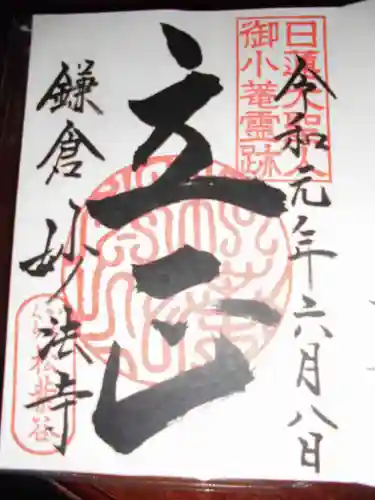 日蓮大聖人
御小菴霊跡
令和元年六月八日
立正
鎌倉 妙法寺
松葉谷